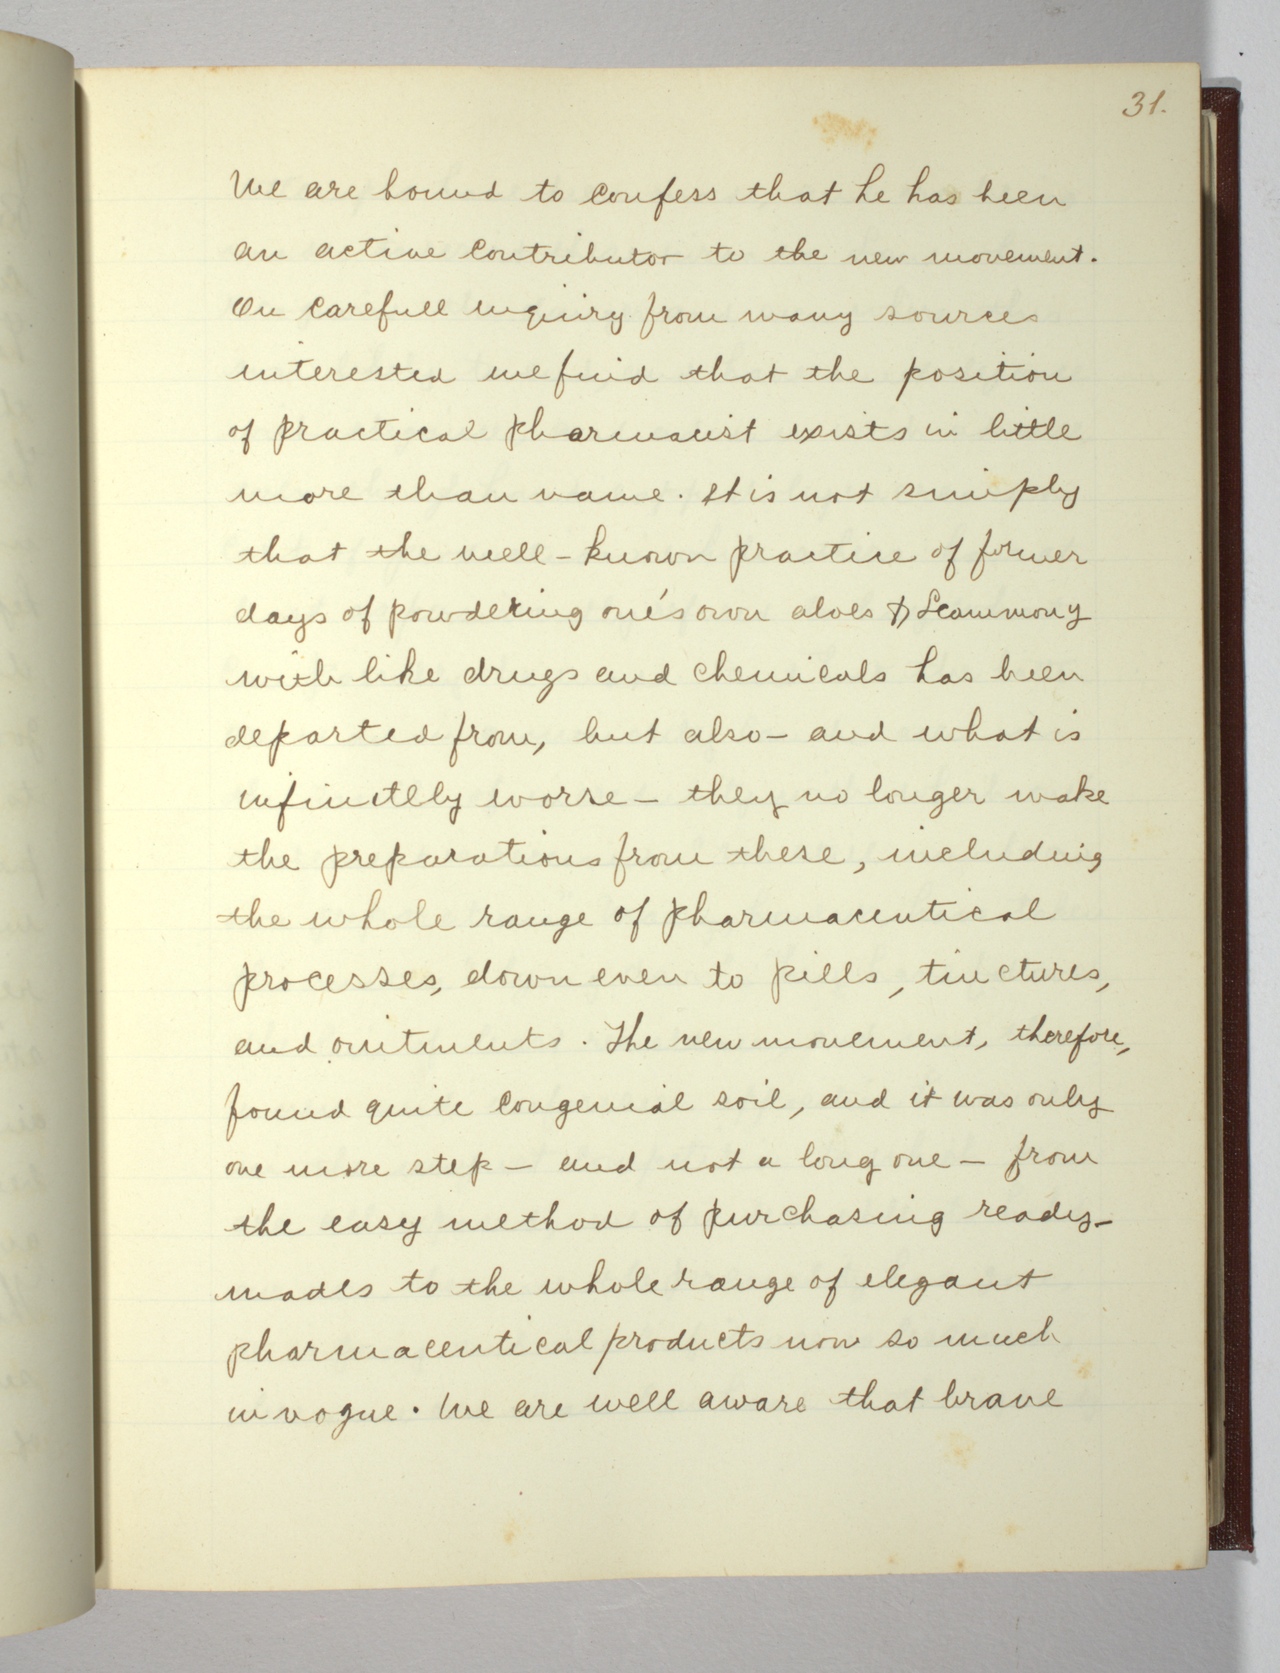 31.
We are bound to confess that he has been
an active contributor to the new movement.
On carefull inquiry from many sources
interested we find that the position
of practical pharmacist exists in little
more than name. It is not simply
that the well-known practice of former
days of powdering one's own aloes & Scammony
with like drugs and chemicals has been
departed from, but also - and what is
infinitely worse - they no longer make
the preparations from these, including
the whole range of pharmaceutical
processes, down even to pills, tinctures,
and ointments. The new movement, therefore,
found quite congenial soil, and it was only
one more step - and not a long one - from
the easy method of purchasing ready-
mades to the whole range of elegant
pharmaceutical products now so much
in vogue. We are well aware that brave